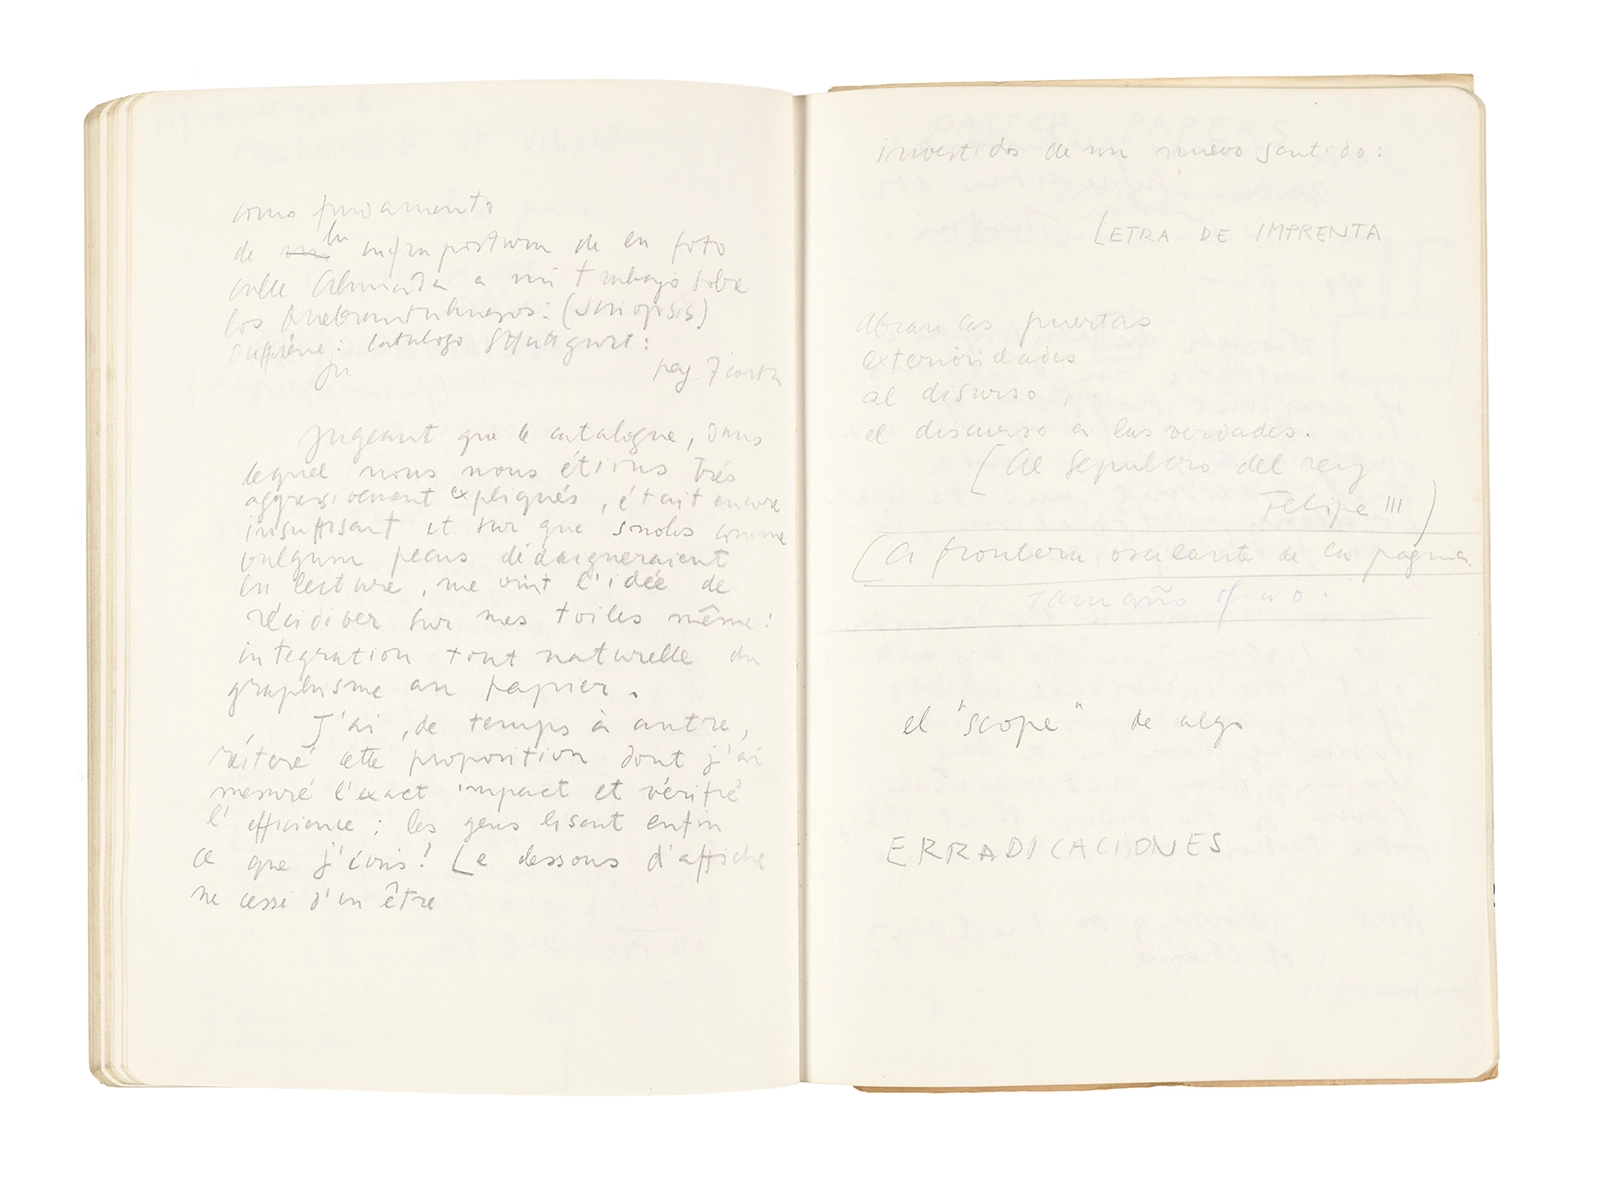 como fundamento
de la infrapostura de en foto
calle Ahumada a mi trabajo sobre
los (Sinopsis)
Dufrêne: catalogo Stuttgart:
pag 7
Jugeant que le catalogue, dans
lequel nous nous étions très
aggressivement expliqués, était encore
insuffisant et sur que snobs comme
vulgum pecus dédaigneraient
la lecture, me vint l'idée de
récidiver sur mes toiles même:
integration tout naturelle du
graphisme au papier.
J'ai, de temps à autre,
réitéré cette proposition dont j'ai
mesuré l'exact impact et vérifié
l'efficience; les gens lisent enfin
ce que j'écris! Le dessous d'affiche
ne cesse d'en être
investidos de un nuevo sentido:
LETRA DE IMPRENTA
abran las puertas
exterioridades
al disurso,
el discurso a las verdades.
(Al sepulcro del rey
Felipe III)
(La frontera oscilante de la pagina
Tamaño oficio.
el "scope" de algo
ERRADICACIONES